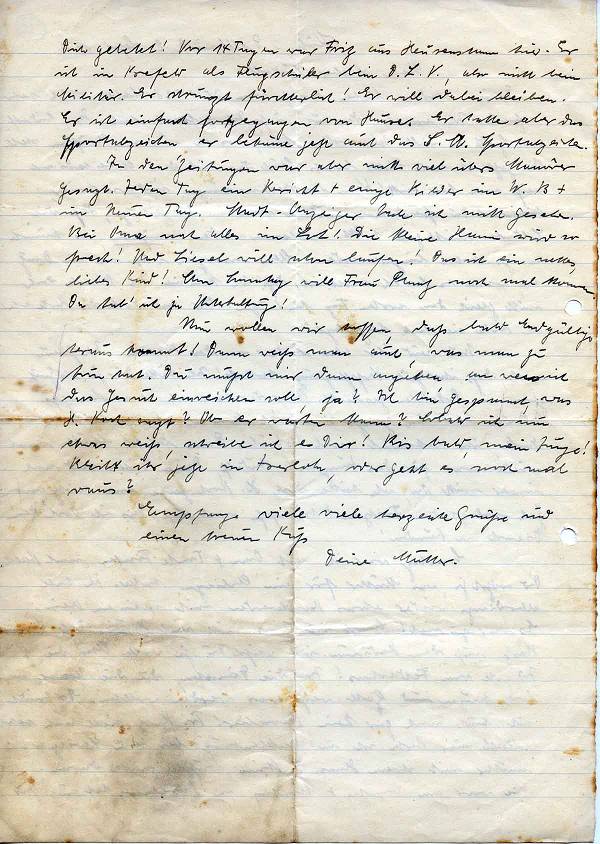 Dich gelobt! Vor 14 Tagen war Fritz aus Heusenstamm hier. Er
ist in Krefeld als Flugschüler beim D.L.V., also nicht beim
Militär. Er strunzt fürchterlich! Er will dabei bleiben.
Er ist einfach fortgegangen von Hause. Er hatte aber das
Sportabzeichen er bekäme jetzt auch das S.A. Sportabzeichen.
In den Zeitungen war aber nicht viel übers Manöver
gesagt. Jeden Tag ein Bericht + einige Bilder im W. B +
im Neuen Tag. Stadt-Anzeiger habe ich nicht gesehen.
Bei Oma ist alles im Lot! Die kleine Hanni wird so
frech! Und Liesel will schon laufen! Das ist ein nettes,
liebes Kind! Am Sonntag will Frau noch mal kommen.
Da hab' ich ja Unterhaltung!
Nun wollen wir hoffen, daß bald Endgültiges
heraus kommt! Dann weiß man auch, was man zu
tun hat. Du mußt mir dann angeben, an wen ich
das Gesuch einreichen soll, ja? Ich bin gespannt, was
H. Koch sagt? Ob er warten kann? Sobald ich nun
etwas weiß, schreibe ich es Dir! Bis bald, mein Junge!
Bleibt ihr jetzt in Iserlohn, oder geht es noch mal
raus?
Empfange viele viele herzliche Grüße und
einen treuen Kuß
Deine Mutter.